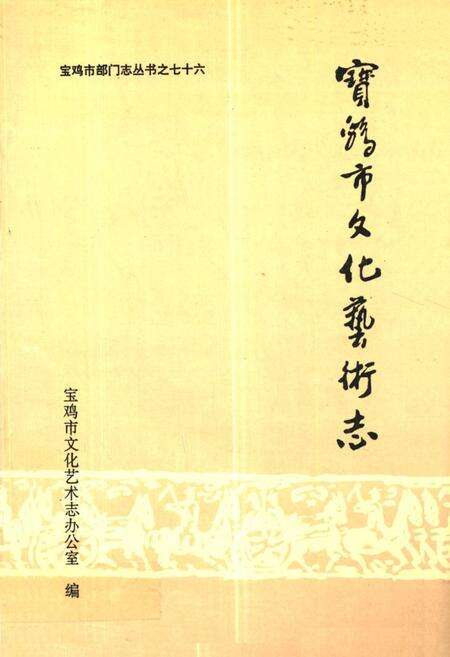 宝鸡市部门志丛书之七十六
寶鸡市文化藝術志
宝鸡市文化艺术志办公室 编